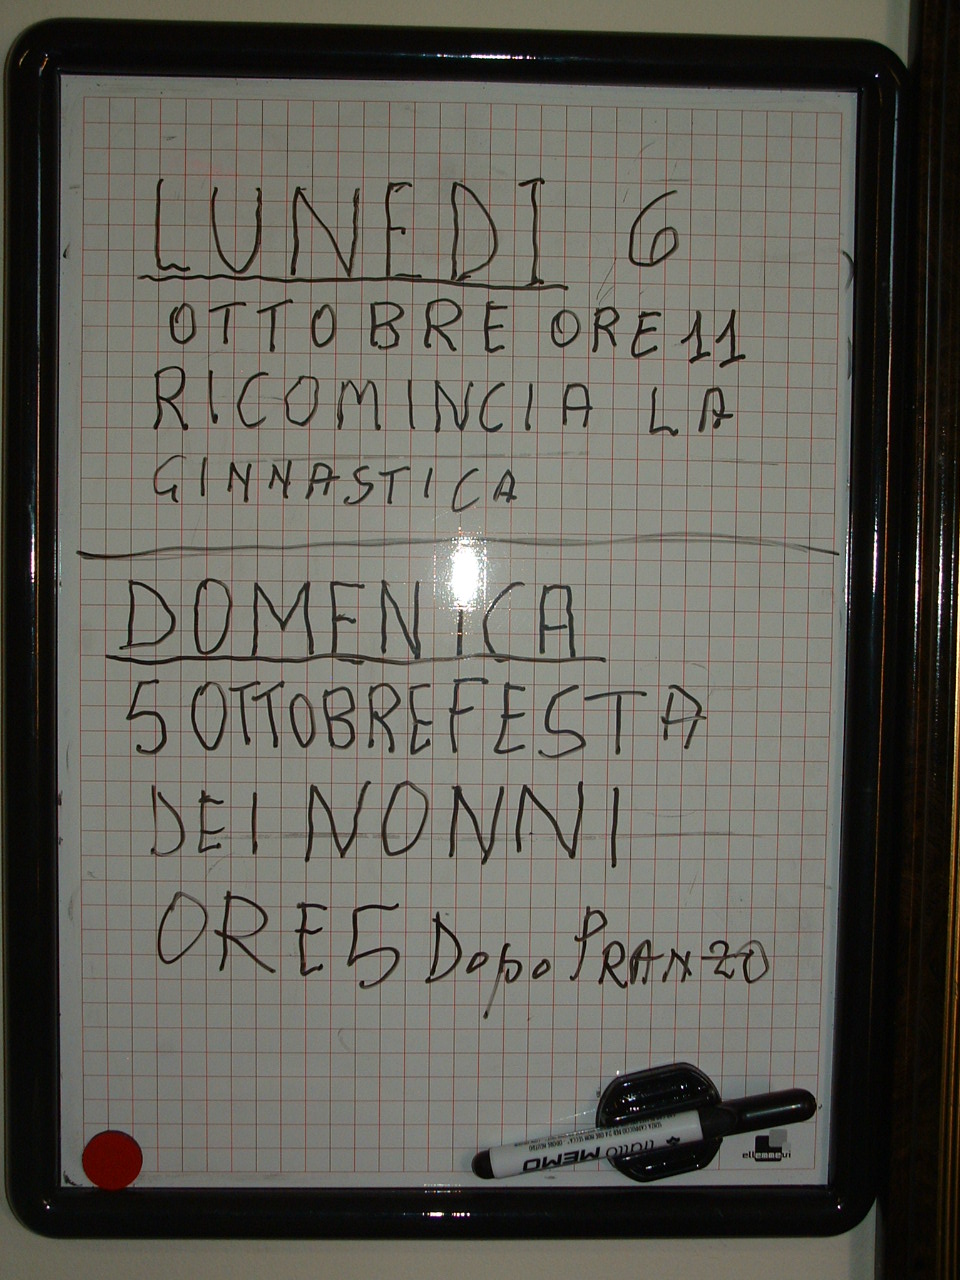 LUNEDI 6
OTTOBRE ORE 11
RICOMINCIA LA
GINNASTICA
DOMENICA
5 OTTOBRE FESTA
DEI NONNI
ORE 5 Dopo PRANZO
tratto MEMO